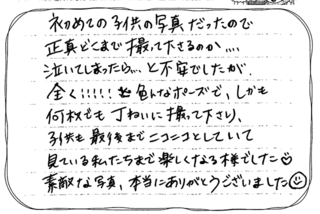 初めての子供の写真だったので
正直どこまで撮って下さるのか....
泣いてしまったら...と不安でしたが、
全く!!!!! 色んなポーズで、しかも
何枚でも丁ねいに撮って下さり、
子供も最後までニコニコとしていて
見ている私たちまで楽しくなる様でした
素敵な写真、本当にありがとうございました